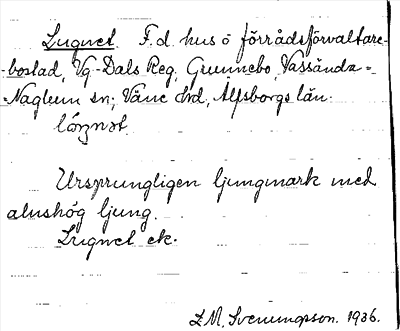 Lugnet. F.d. hus o förrådsförvaltare-
-bostad, Vg-Dals Reg, Grunnebo, Vassända-
-Naglum sn; Väne hd, Älfsborgs län.
Ursprungligen ljungmark med
alnshög ljung.
Lugnet ek.
Z.M. Svenungsson. 1936.